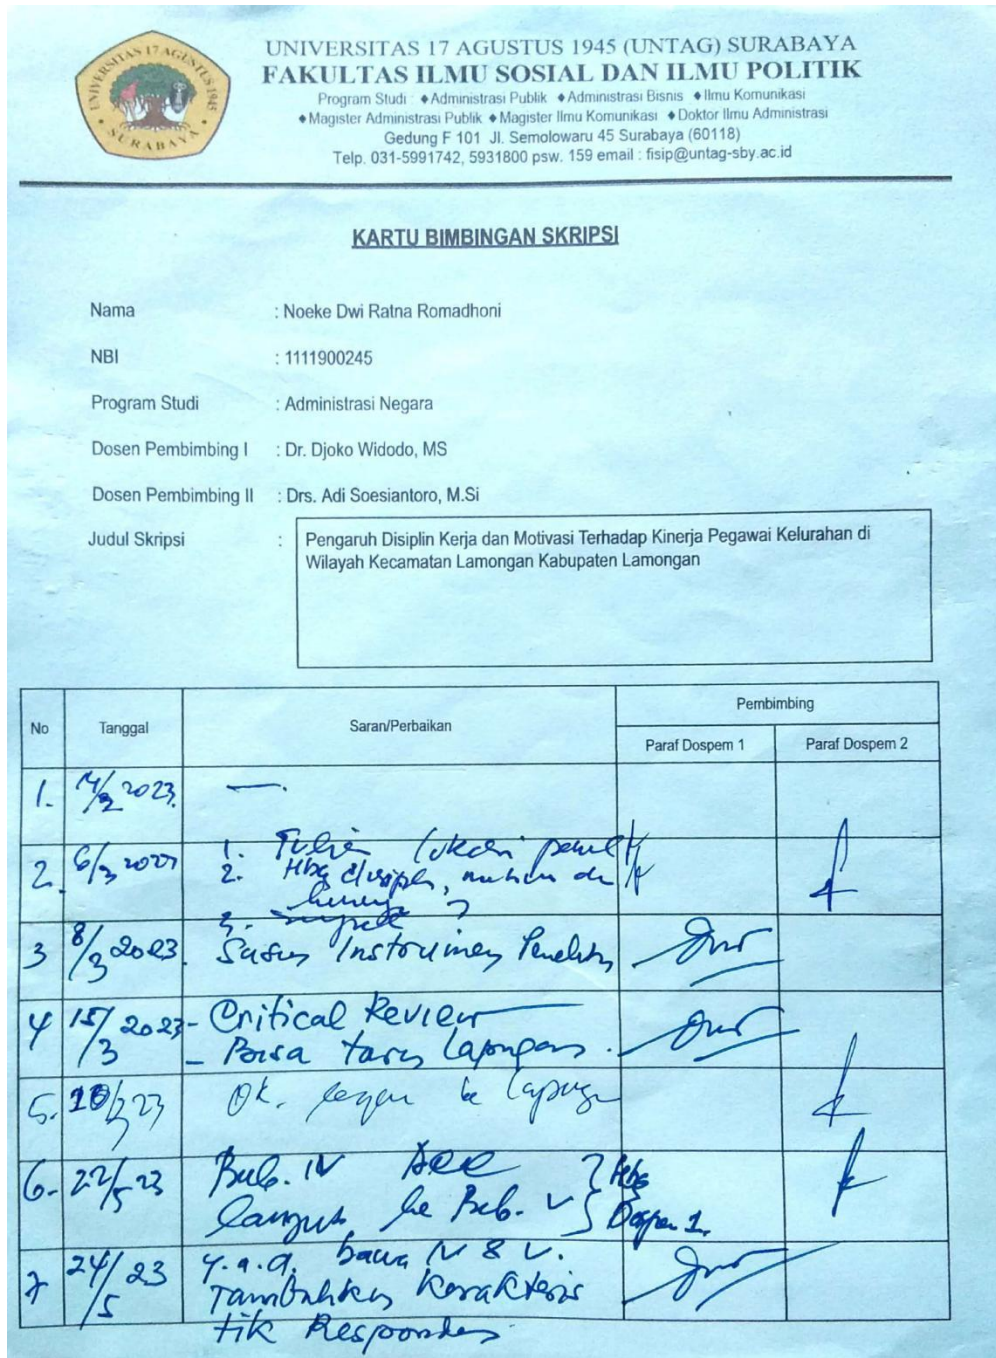 UNIVERSITAS 17 AGUSTUS 1945 SURABAYA
UNIVERSITAS 17 AGUSTUS 1945 (UNTAG) SURABAYA
FAKULTAS ILMU SOSIAL DAN ILMU POLITIK
Program Studi : ♦Administrasi Publik ♦Administrasi Bisnis ♦Ilmu Komunikasi
♦Magister Administrasi Publik ♦Magister Ilmu Komunikasi ♦Doktor Ilmu Administrasi
Gedung F 101 Jl. Semolowaru 45 Surabaya (60118)
Telp. 031-5991742, 5931800 psw. 159 email : fisip@untag-sby.ac.id
KARTU BIMBINGAN SKRIPSI
Nama : Noeke Dwi Ratna Romadhoni
NBI : 1111900245
Program Studi : Administrasi Negara
Dosen Pembimbing I : Dr. Djoko Widodo, MS
Dosen Pembimbing II : Drs. Adi Soesiantoro, M.Si
Judul Skripsi : Pengaruh Disiplin Kerja dan Motivasi Terhadap Kinerja Pegawai Kelurahan di
Wilayah Kecamatan Lamongan Kabupaten Lamongan
No Tanggal Saran/Perbaikan Pembimbing
Paraf Dospem 1 Paraf Dospem 2
1. 2023. —.
2. 6/3 1.
2.
3.
3 8/3 2023. Instrumen
4 15/3 2023 - Critical Review
- Bisa
5. 23 Ok. ke
6. 22/5 23 Bab. IV Acc
ke Bab. V
7 24/5 23 y.a.d. bawa IV & V.
Tambahkan Karakteris
tik Responden